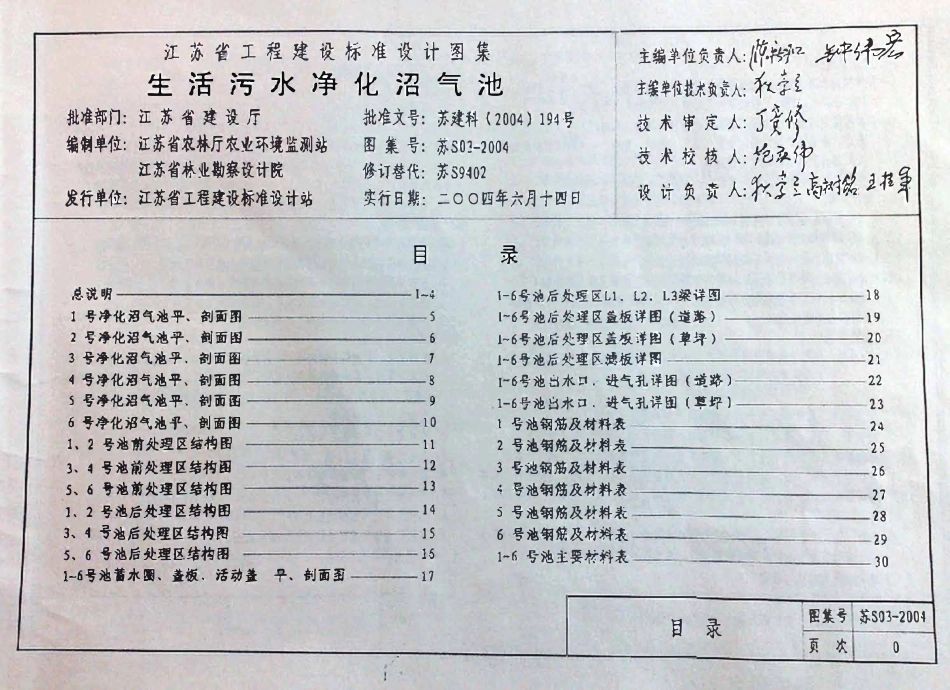 江苏省工程建设标准设计图集
生活污水净化沼气池
批准部门：江苏省建设厅
批准文号：苏建科（2004）194号
编制单位：江苏省农林厅农业环境监测站
图集号：苏S03-2004
江苏省林业勘察设计院
修订替代：苏S9402
发行单位：江苏省工程建设标准设计站
实行日期：二〇〇四年六月十四日
主编单位负责人：
主编单位技术负责人：
技术审定人：
技术校核人：
设计负责人：
目 录
总说明 1-4
1号净化沼气池平、剖面图 5
2号净化沼气池平、剖面图 6
3号净化沼气池平、剖面图 7
4号净化沼气池平、剖面图 8
5号净化沼气池平、剖面图 9
6号净化沼气池平、剖面图 10
1、2号池前处理区结构图 11
3、4号池前处理区结构图 12
5、6号池前处理区结构图 13
1、2号池后处理区结构图 14
3、4号池后处理区结构图 15
5、6号池后处理区结构图 16
1-6号池蓄水圈、盖板、活动盖 平、剖面图 17
1-6号池后处理区L1、L2、L3梁详图 18
1-6号池后处理区盖板详图（道路） 19
1-6号池后处理区盖板详图（草坪） 20
1-6号池后处理区滤板详图 21
1-6号池出水口、进气孔详图（道路） 22
1-6号池出水口、进气孔详图（草坪） 23
1号池钢筋及材料表 24
2号池钢筋及材料表 25
3号池钢筋及材料表 26
4号池钢筋及材料表 27
5号池钢筋及材料表 28
6号池钢筋及材料表 29
1-6号池主要材料表 30
目 录
图集号 苏S03-2004
页次 0